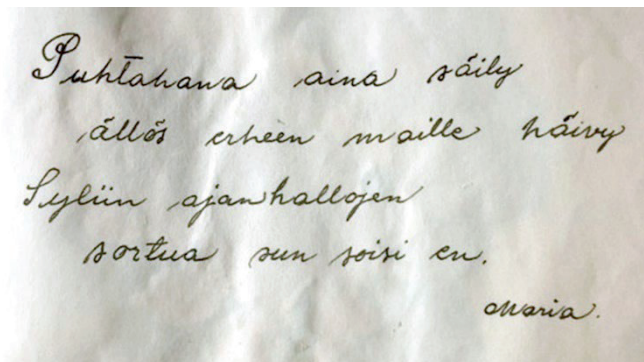 Puhtahana aina säily
ällös erheen maille häivy
Syliin ajanhallojen
sortua sun soisi en.
Maria.